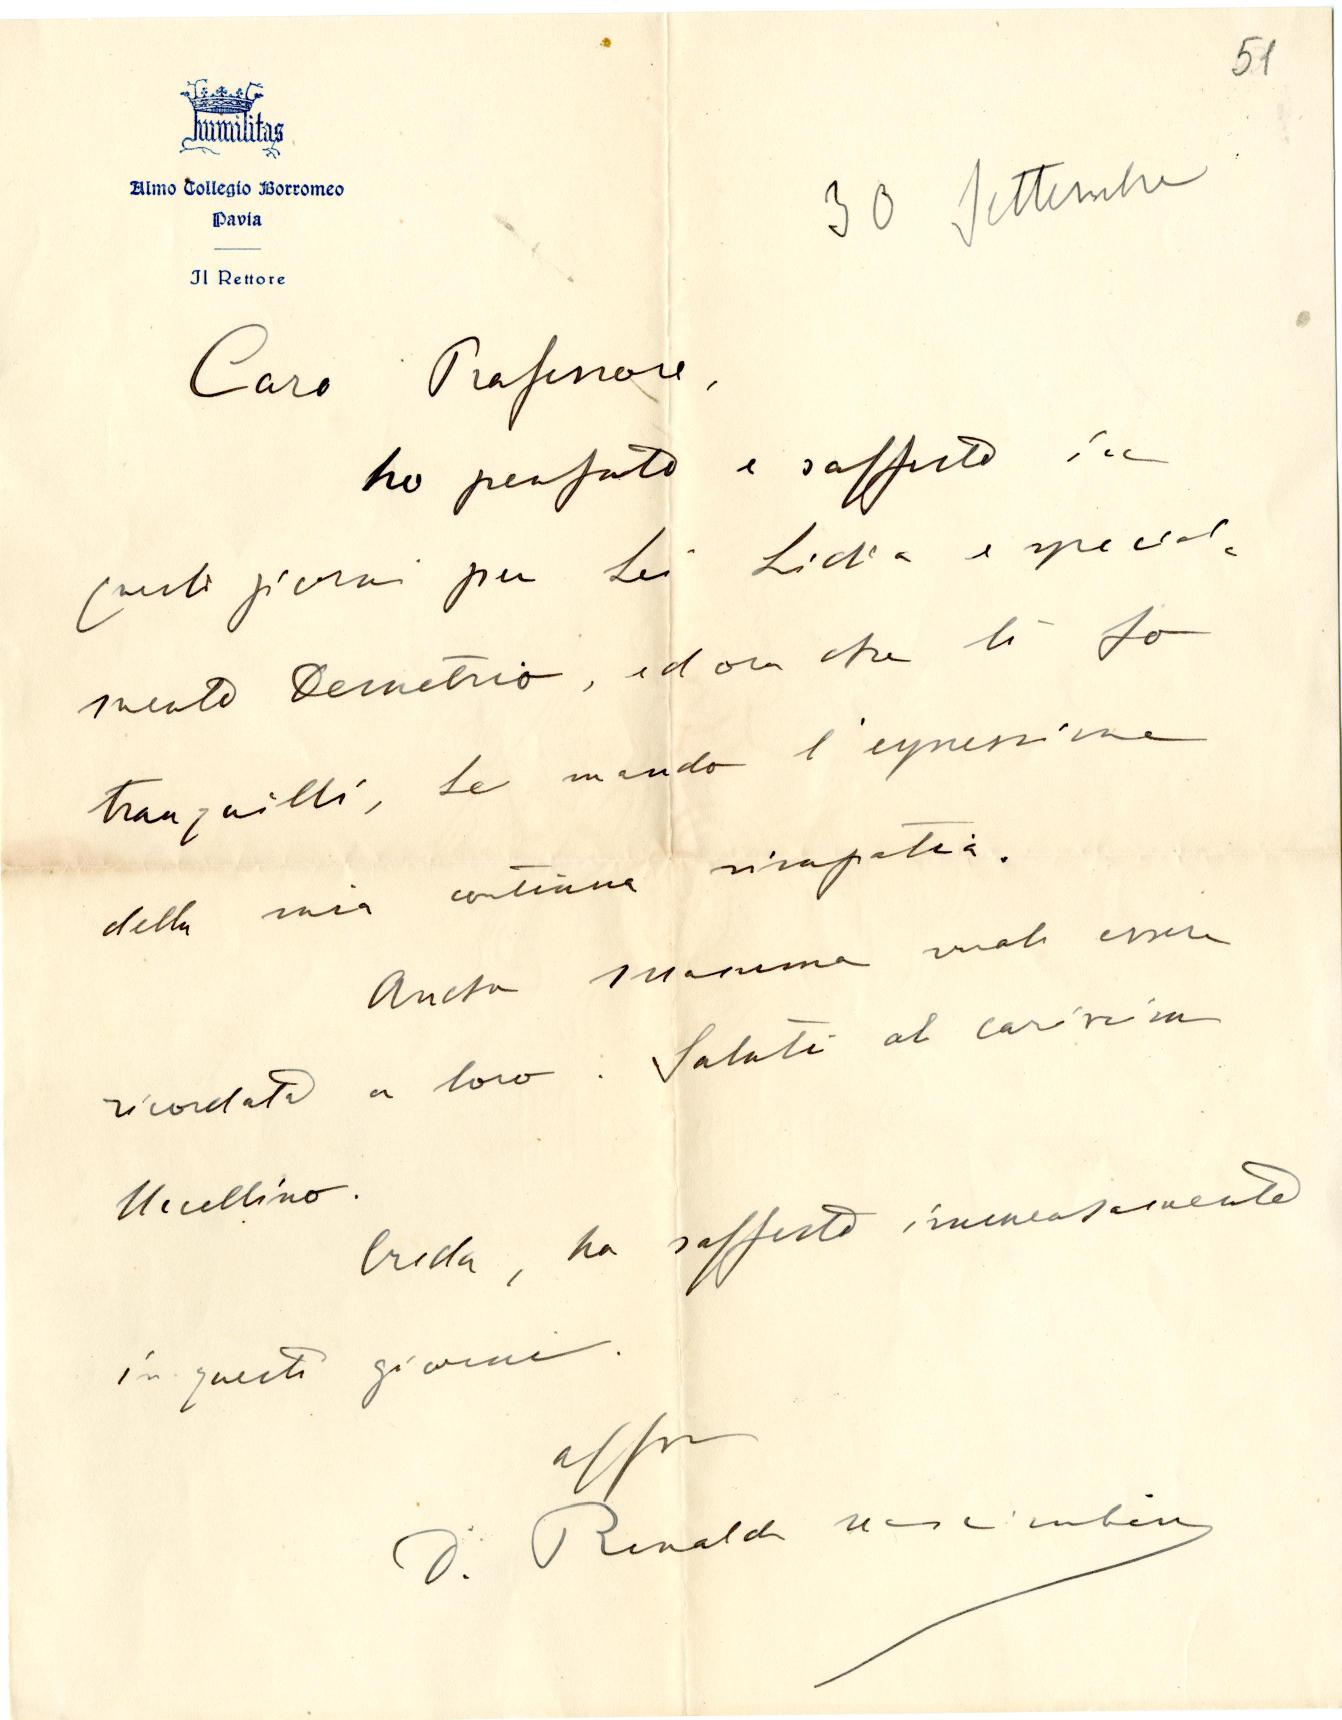 51
humilitas
Almo Collegio Borromeo
Pavia
Il Rettore
30 Settembre
Caro Professore,
ho pensato e sofferto in
questi giorni per Lei Lidia e special-
mente Demetrio, ed ora che li so
tranquilli, Le mando l'espressione
della mia continua simpatia.
Anche mamma vuole essere
ricordata a loro. Saluti al carissimo
Uccellino.
Creda, ho sofferto immensamente
in questi giorni.
affmo
D. Rinaldo Nascimbene